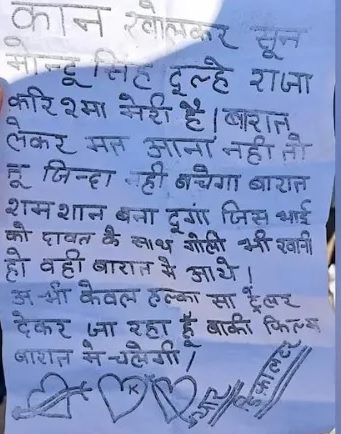 कान खोलकर सून
मोन्टू सिंह दूल्हे राजा
करिश्मा मेरी है। बारात
लेकर मत आना नही तो
तू जिन्दा नही बचेगा बारात
शमशान बना दूगां जिस भाई
को दावत के साथ गोली भी खानी
हो वही बारात मे आये।
अभी केवल हल्का सा ट्रेलर
देकर जा रहा हूँ बाकी फिल्म
बारात मे चलेगी।
K